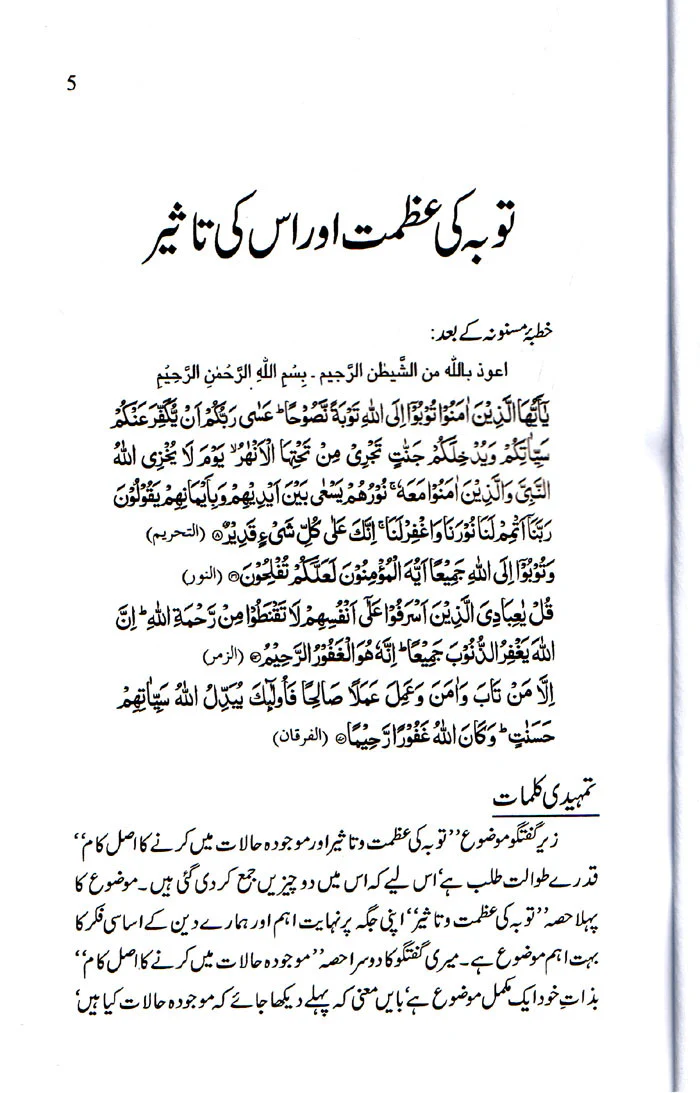 5
توبہ کی عظمت اور اس کی تاثیر
خطبۂ مسنونہ کے بعد:
اعوذ باللّٰہ من الشَّیطٰن الرَّجیم ۔ بِسْمِ اللّٰہِ الرَّحْمٰنِ الرَّحِیْمِ
یٰۤاَیُّہَا الَّذِیْنَ اٰمَنُوْا تُوْبُوْۤا اِلَی اللّٰہِ تَوْبَةً نَّصُوْحًا ؕ عَسٰی رَبُّکُمْ اَنْ یُّکَفِّرَ عَنْکُمْ
سَیِّاٰتِکُمْ وَیُدْخِلَکُمْ جَنّٰتٍ تَجْرِیْ مِنْ تَحْتِہَا الْاَنْہٰرُ ۙ یَوْمَ لَا یُخْزِی اللّٰہُ
النَّبِیَّ وَالَّذِیْنَ اٰمَنُوْا مَعَہٗ ۚ نُوْرُہُمْ یَسْعٰی بَیْنَ اَیْدِیْہِمْ وَبِاَیْمَانِہِمْ یَقُوْلُوْنَ
رَبَّنَاۤ اَتْمِمْ لَنَا نُوْرَنَا وَاغْفِرْ لَنَا ۚ اِنَّکَ عَلٰی کُلِّ شَیْءٍ قَدِیْرٌ ﴿۸﴾ (التحریم)
وَتُوْبُوْۤا اِلَی اللّٰہِ جَمِیْعًا اَیُّہَ الْمُؤْمِنُوْنَ لَعَلَّکُمْ تُفْلِحُوْنَ ﴿۳۱﴾ (النور)
قُلْ یٰعِبَادِیَ الَّذِیْنَ اَسْرَفُوْا عَلٰۤی اَنْفُسِہِمْ لَا تَقْنَطُوْا مِنْ رَّحْمَةِ اللّٰہِ ؕ اِنَّ
اللّٰہَ یَغْفِرُ الذُّنُوْبَ جَمِیْعًا ؕ اِنَّہٗ ہُوَ الْغَفُوْرُ الرَّحِیْمُ ﴿۵۳﴾ (الزمر)
اِلَّا مَنْ تَابَ وَاٰمَنَ وَعَمِلَ عَمَلًا صَالِحًا فَاُولٰٓئِکَ یُبَدِّلُ اللّٰہُ سَیِّاٰتِہِمْ
حَسَنٰتٍ ؕ وَکَانَ اللّٰہُ غَفُوْرًا رَّحِیْمًا ﴿۷۰﴾ (الفرقان)
تمہیدی کلمات
زیر گفتگو موضوع ’’توبہ کی عظمت و تاثیر اور موجودہ حالات میں کرنے کا اصل کام‘‘
قدرے طوالت طلب ہے‘ اس لیے کہ اس میں دو چیزیں جمع کر دی گئی ہیں۔ موضوع کا
پہلا حصہ ’’توبہ کی عظمت و تاثیر‘‘ اپنی جگہ پر نہایت اہم اور ہمارے دین کے اساسی فکر کا
بہت اہم موضوع ہے۔ میری گفتگو کا دوسرا حصہ ’’موجودہ حالات میں کرنے کا اصل کام‘‘
بذاتِ خود ایک مکمل موضوع ہے‘ بایں معنی کہ پہلے دیکھا جائے کہ موجودہ حالات کیا ہیں‘